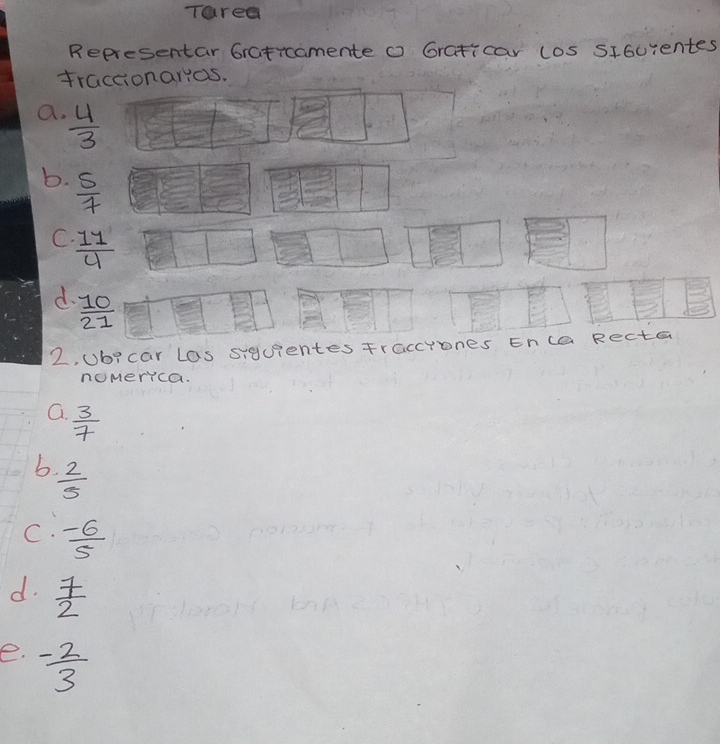 Tarea
Representar Graficamente o Graficar Los SIGUientes
fraccionarios.
a. 4/3
b. 5/7
C. 11/4
d. 10/21
2. Ubicar Las siguientes Fracciones En La Recta
nomerica.
a. 3/7
b. 2/5
C. -6/5
d. 7/2
e. -2/3